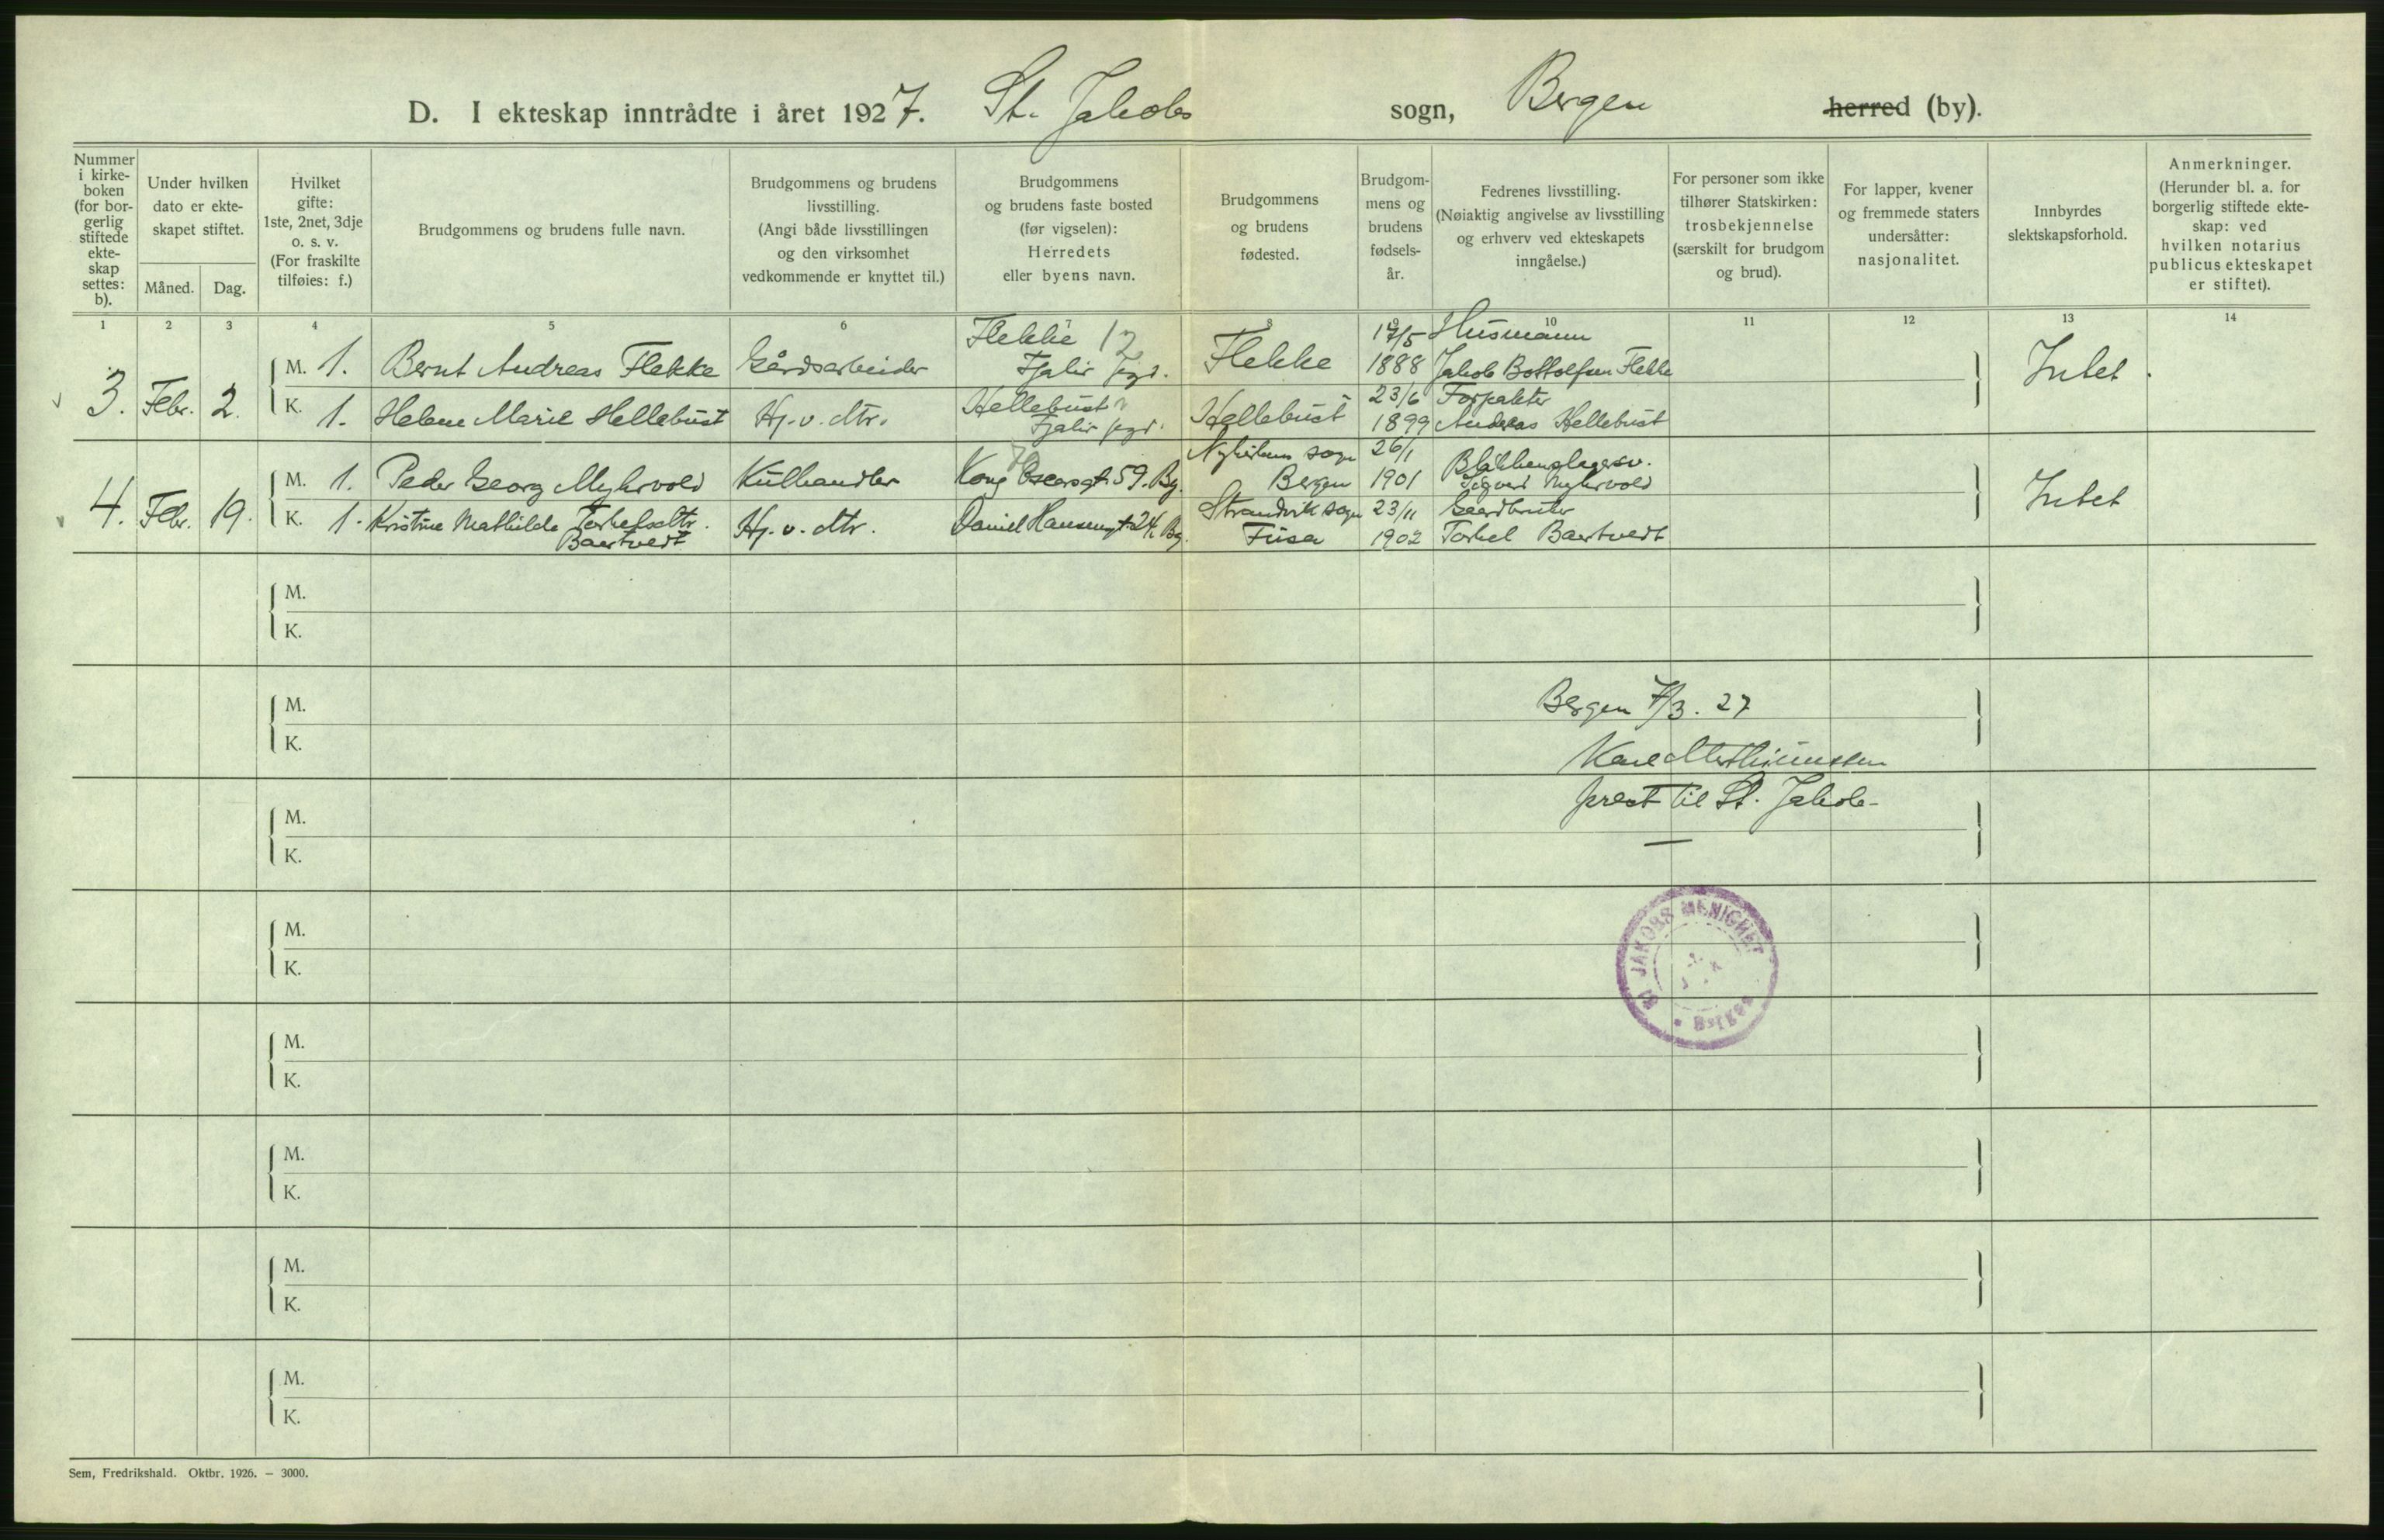 D. I ekteskap inntrådte i året 1927. St. Jakobs sogn, Bergen herred (by).
Nummer i kirkeboken (for borgerlig stiftede ekteskap settes: b).
Under hvilken dato er ekteskapet stiftet.
Måned.
Dag.
Hvilket gifte: 1ste, 2net, 3dje o. s. v. (For fraskilte tilføies: f.)
Brudgommens og brudens fulle navn.
Brudgommens og brudens livsstilling. (Angi både livsstillingen og den virksomhet vedkommende er knyttet til.)
Brudgommens og brudens faste bosted (før vigselen): Herredets eller byens navn.
Brudgommens og brudens fødested.
Brudgommens og brudens fødselsår.
Fedrenes livsstilling. (Nøiaktig angivelse av livsstilling og erhverv ved ekteskapets inngåelse.)
For personer som ikke tilhører Statskirken: trosbekjennelse (særskilt for brudgom og brud).
For lapper, kvener og fremmede staters undersåtter: nasjonalitet.
Innbyrdes slektskapsforhold.
Anmerkninger. (Herunder bl. a. for borgerlig stiftede ekteskap: ved hvilken notarius publicus ekteskapet er stiftet).
1 2 3 4 5 6 8 9 10 11 12 13 14
3. Febr. 2.
M. 1. Bernt Andreas Flekke Gårdsarbeider Flekke Fjaler pgd. Flekke 17/5 1888 Husmann Jakob Bottolfsen Flekke
K. 1. Helene Marie Hellebust Hj. v. Mtr. Hellebust Fjaler pgd. Hellebust 23/6 1899 Forpakter Andreas Hellebust
Intet
4. Febr. 19.
M. 1. Peder Georg Myhrvold Kulhandler Kong Oscarsgt. 59. Bg. Nykirkens sogn Bergen 26/1 1901 Blikkenslagersv. Sigvard Myhrvold
K. 1. Kristine Mathilde Torkelsdtr. Baertvedt Hj. v. dtr. Daniel Hansensgt. 24, Bg. Strandvik sogn Fusa 23/11 1902 Gaardbruker Torkel Baertvedt
Intet
M.
K.
M.
K.
Bergen 7/3. 27
prest til St. Jakob
M.
K.
M.
K.
ST JAKOBS MENIGHET
Bergen
M.
K.
M.
K.
M.
K.
M.
K.
Sem, Fredrikshald. Oktbr. 1926. — 3000.